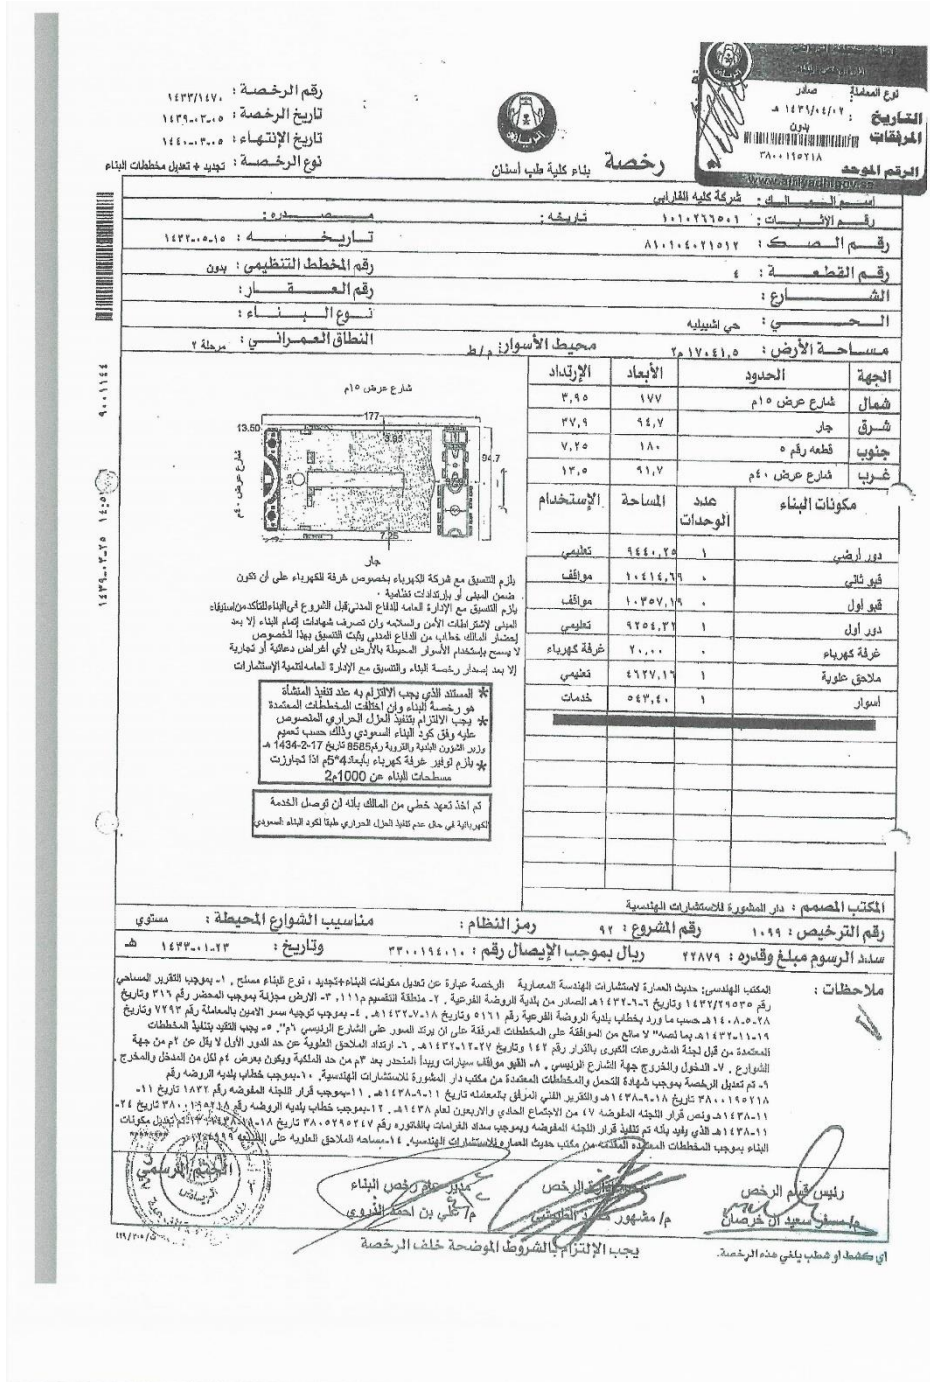 نوع المعاملة: صادر
التاريخ : ١٤٣٩/٠٤/٠٢ هـ
المرفقات بدون
٣٨٠٠١٩٥٢١٨
الرقم الموحد
رقم الرخصة : ١٤٣٣/١٤٧٠
تاريخ الرخصة : ١٤٣٩-٠٣-٠٥
تاريخ الإنتهاء : ١٤٤٠-٠٣-٠٥
نوع الرخصة : تجديد + تعديل مخططات البناء
الرياض
رخصة بناء كلية طب أسنان
اسم المالك : شركة كليه الفارابي
رقم الإثبات : ١٠١٠٢٦٦٥٠١ تاريخه : مصدره :
رقم الصك : ٨١٠١٠٤٠٢١٥١٢ تاريخه : ١٤٣٢-٠٥-١٥
رقم القطعة : ٤ رقم المخطط التنظيمي : بدون
الشارع : رقم العقار :
الحي : حي اشبيليه نوع البناء :
مساحة الأرض : ١٧٠٤١,٥ م٢ محيط الأسوار: م/ط النطاق العمراني : مرحلة ٢
الجهة الحدود الأبعاد الإرتداد
شمال شارع عرض ١٥م ١٧٧ ٣,٩٥
شرق جار ٩٤,٧ ٣٧,٩
جنوب قطعه رقم ٥ ١٨٠ ٧,٢٥
غرب شارع عرض ٤٠م ٩١,٧ ١٣,٥
مكونات البناء عدد الوحدات المساحة الإستخدام
دور أرضي ١ ٩٤٤٠,٢٥ تعليمي
قبو ثاني ٠ ١٠٤١٤,٦٩ مواقف
قبو أول ٠ ١٠٣٥٧,١٩ مواقف
دور أول ١ ٩٢٥٤,٣٢ تعليمي
غرفة كهرباء ٠ ٢٠,٠٠ غرفة كهرباء
ملاحق علوية ١ ٤٦٢٧,١٦ تعليمي
أسوار ١ ٥٤٣,٤٠ خدمات
شارع عرض ١٥م
177
13.50
3.95
94.7
شارع عرض ٤٠م
7.25
جار
يلزم التنسيق مع شركة الكهرباء بخصوص غرفة الكهرباء على أن تكون
ضمن المبنى أو بإرتدادات نظامية .
يلزم التنسيق مع الإدارة العامه للدفاع المدني قبل الشروع في البناء للتأكد من استيفاء
المبنى لإشتراطات الأمن والسلامه وان تصرف شهادات إتمام البناء إلا بعد
إحضار المالك خطاب من الدفاع المدني يثبت التنسيق بهذا الخصوص
لا يسمح بإستخدام الأسوار المحيطة بالأرض لأي أغراض دعائية أو تجارية
إلا بعد إصدار رخصة البناء والتنسيق مع الإدارة العامه لتنمية الإستثمارات
* المستند الذي يجب الالتزام به عند تنفيذ المنشأة
هو رخصة البناء وان اختلفت المخططات المعتمدة
* يجب الالتزام بتنفيذ العزل الحراري المنصوص
عليه وفق كود البناء السعودي وذلك حسب تعميم
وزير الشؤون البلدية والقروية رقم 8585 تاريخ 17-2-1434 هـ
* يلزم توفير غرفة كهرباء بأبعاد 4*5م اذا تجاوزت
مسطحات البناء عن 1000م2
تم اخذ تعهد خطي من المالك بأنه لن توصل الخدمة
الكهربائية في حال عدم تنفيذ العزل الحراري طبقا لكود البناء السعودي
٩٠٠١١٤٤
المكتب المصمم : دار المشورة للاستشارات الهندسية
رقم الترخيص : ١٠٩٩ رقم المشروع : ٩٢ رمز النظام : مناسيب الشوارع المحيطة : مستوي
سدد الرسوم مبلغ وقدره : ٢٢٨٧٩ ريال بموجب الإيصال رقم : ٣٣٠٠١٩٤٠١٠ وتاريخ : ١٤٣٣-٠١-٢٣ هـ
ملاحظات : المكتب الهندسي: حديث العمارة لاستشارات الهندسة المعمارية الرخصة عبارة عن تعديل مكونات البناء+تجديد , نوع البناء مسلح . ١- بموجب التقرير المساحي
رقم ١٤٣٢/٢٩٥٣٥ تاريخ ٦-٦-١٤٣٢هـ الصادر من بلدية الروضة الفرعية . ٢- منطقة التقسيم م١١١. ٣- الارض مجزلة بموجب المحضر رقم ٣١٦ وتاريخ
٢٨-٥-١٤٠٨هـ حسب ما ورد بخطاب بلدية الروضة الفرعية رقم ٥١٦١ وتاريخ ١٨-٧-١٤٣٢هـ. ٤- بموجب توجيه سمو الامين بالمعاملة رقم ٧٢٩٣ وتاريخ
١٩-١١-١٤٣٢هـ بما نصه" لا مانع من الموافقة على المخططات المرفقة على ان يرتد السور على الشارع الرئيسي ٦م". ٥- يجب التقيد بتنفيذ المخططات
المعتمدة من قبل لجنة المشروعات الكبرى بالقرار رقم ١٤٢ وتاريخ ٢٧-١٢-١٤٣٢هـ. ٦- ارتداد الملاحق العلوية عن حد الدور الأول لا يقل عن ٢م من جهة
الشوارع . ٧- الدخول والخروج جهة الشارع الرئيسي . ٨- القبو مواقف سيارات ويبدأ المنحدر بعد ٣م من حد الملكية ويكون بعرض ٤م لكل من المدخل والمخرج .
٩- تم تعديل الرخصة بموجب شهادة التحمل والمخططات المعتمدة من مكتب دار المشورة للاستشارات الهندسية. ١٠-بموجب خطاب بلديه الروضه رقم
٣٨٠٠١٩٥٢١٨ تاريخ ١٨-٩-١٤٣٨هـ والتقرير الفني المرفق بالمعامله تاريخ ١١-٩-١٤٣٨هـ . ١١-بموجب قرار اللجنه المفوضه رقم ١٨٣٢ تاريخ ١١-
١١-١٤٣٨هـ ونص قرار اللجنه المفوضه ٤٧ من الاجتماع الحادي والاربعون لعام ١٤٣٨هـ . ١٢-بموجب خطاب بلديه الروضه رقم ٣٨٠٠١٩٥٢١٨ تاريخ ٢٤-
١١-١٤٣٨هـ الذي يفيد بأنه تم تنفيذ قرار اللجنه المفوضه وبموجب سداد الغرامات بالفاتوره رقم ٣٨٠٥٢٩٥٢٤٧ تاريخ ١٨- تم تعديل مكونات
البناء بموجب المخططات المعتمده المقدمه من مكتب حديث العماره للاستشارات الهندسيه. ١٤-مساحه الملاحق العلويه على
رئيس قسم الرخص
م/مسفر سعيد آل خرصان
مدير إدارة الرخص
م/ مشهور
مدير عام رخص البناء
م/ علي بن احمد الذروي
الختم الرسمي
يجب الإلتزام بالشروط الموضحة خلف الرخصة
اي كشط او شطب يلغي هذه الرخصة.